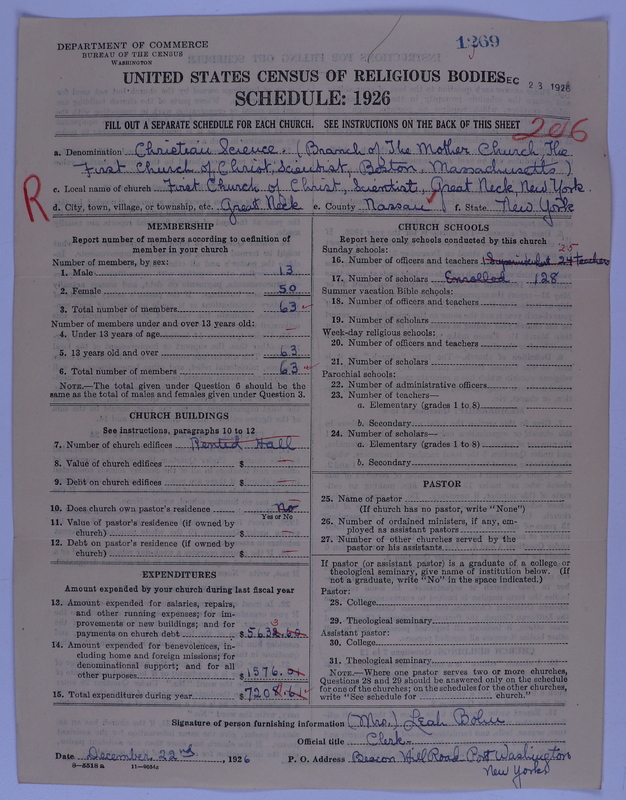 DEPARTMENT OF COMMERCE
BUREAU OF THE CENSUS
WASHINGTON
1269
UNITED STATES CENSUS OF RELIGIOUS BODIES
EC 23 1926
SCHEDULE: 1926
FILL OUT A SEPARATE SCHEDULE FOR EACH CHURCH. SEE INSTRUCTIONS ON THE BACK OF THIS SHEET
206
a. Denomination Christian Science. (Branch of The Mother Church, The
First Church of Christ, Scientist, Boston, Massachusetts)
R
c. Local name of church First Church of Christ, Scientist, Great Neck, New York.
d. City, town, village, or township, etc. Great Neck e. County Nassau f. State New York
MEMBERSHIP
Report number of members according to definition of
member in your church
Number of members, by sex:
1. Male 13
2. Female 50
3. Total number of members 63
Number of members under and over 13 years old:
4. Under 13 years of age —
5. 13 years old and over 63
6. Total number of members 63
NOTE.—The total given under Question 6 should be the
same as the total of males and females given under Question 3.
CHURCH BUILDINGS
See instructions, paragraphs 10 to 12
7. Number of church edifices Rented Hall
8. Value of church edifices $ —
9. Debt on church edifices $ —
10. Does church own pastor's residence No
Yes or No
11. Value of pastor's residence (if owned by
church) $ —
12. Debt on pastor's residence (if owned by
church) $ —
EXPENDITURES
Amount expended by your church during last fiscal year
13. Amount expended for salaries, repairs,
and other running expenses; for im-
provements or new buildings; and for
payments on church debt $5632.60
14. Amount expended for benevolences, in-
cluding home and foreign missions; for
denominational support; and for all
other purposes $1576.01
15. Total expenditures during year $7208.61
CHURCH SCHOOLS
Report here only schools conducted by this church
Sunday schools:
25
16. Number of officers and teachers 1 Superintendent 24 teachers
17. Number of scholars Enrolled 128
Summer vacation Bible schools:
18. Number of officers and teachers
19. Number of scholars
Week-day religious schools:
20. Number of officers and teachers
21. Number of scholars
Parochial schools:
22. Number of administrative officers
23. Number of teachers—
a. Elementary (grades 1 to 8)
b. Secondary
24. Number of scholars—
a. Elementary (grades 1 to 8)
b. Secondary
PASTOR
25. Name of pastor
(If church has no pastor, write "None")
26. Number of ordained ministers, if any, em-
ployed as assistant pastors
27. Number of other churches served by the
pastor or his assistants
If pastor (or assistant pastor) is a graduate of a college or
theological seminary, give name of institution below. (If
not a graduate, write "No" in the space indicated.)
Pastor:
28. College
29. Theological seminary
Assistant pastor:
30. College
31. Theological seminary
NOTE.—Where one pastor serves two or more churches,
Questions 28 and 29 should be answered only on the schedule
for one of the churches; on the schedules for the other churches,
write "See schedule for church."
Signature of person furnishing information (Mrs.) Leah Bohn
Official title Clerk
Date December 22nd, 1926 P. O. Address Beacon Hill Road Port Washington
New York
8—5518 a